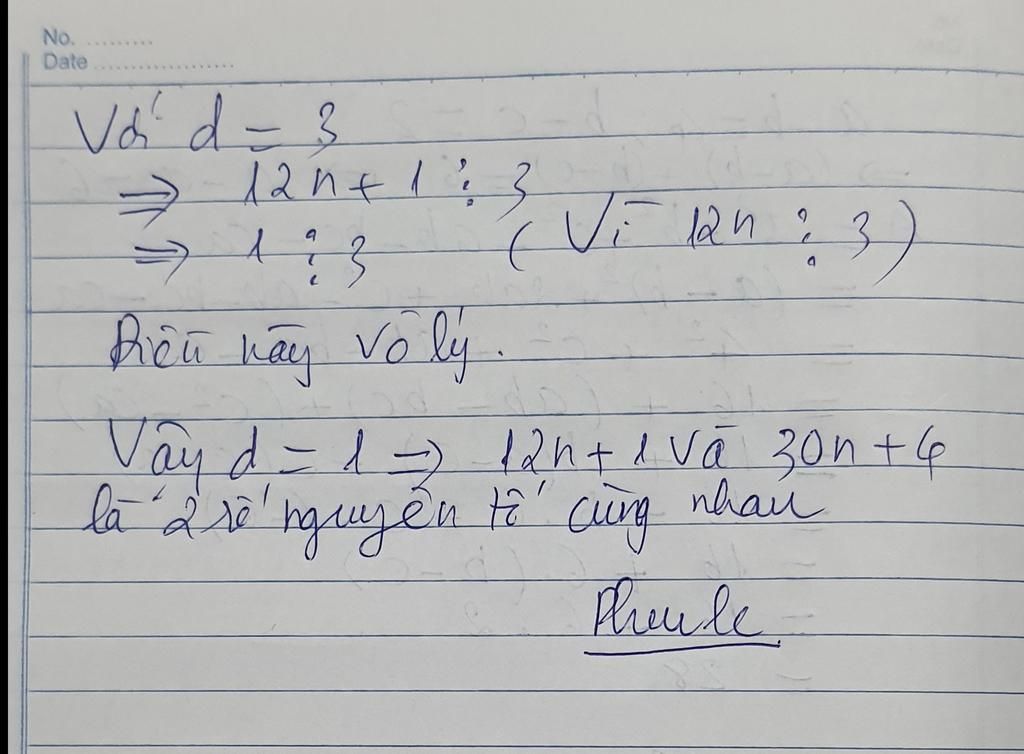 No. .........
Date ...................
Với d = 3
⇒ 12n + 1 ⋮ 3
⇒ 1 ⋮ 3 ( Vì 12n ⋮ 3 )
Điều này vô lý.
Vậy d = 1 ⇒ 12n + 1 và 30n + 4
là 2 số nguyên tố cùng nhau